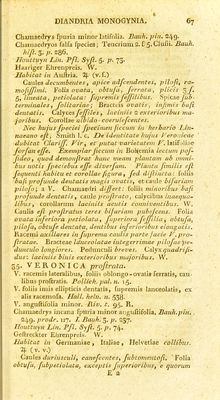 DIANDRIA MONOGYNIA. 67
Chamaedrys spuria minor latifolia. Bauh. pin. 249.
Chamaedryos falsa species; Teucrium 2. & 5. Clusii. Bauh.
hist. 3. p. 286.
Houttuyn Lin. Pfl. Syst. 5. p. 73.
Haariger Ehrenpreis. W.
Habitat in Austria. ♃ (v. s.)
Caules decumbentes, apice adscendentes, pilosi, ra-
mosissimi. Folia ovata, obtusa, serrata, pilosa 3 s.
5, linata, petiolata superis fessilibus. Spicae sub-
terminales, solitariae; Bracteis ovatis, infimis basi
dentatis. Calyces sessiles, laciniis 2 exterioribus ma-
joribus. Corollae albido-coerulescentes.
Nec hujus speciei specimen siccum in herbario Lin-
neano est, Smith l. c. De identitate hujus Veronicae
dubitat Clariss. Vir, et putat varietatem V. latifoliae
forsan esse. Exemplar siccum in Bohemia lectum pos-
sideo, quod demonstrat hanc meam plantam ab omni-
bus notis speciebus esse diversam. Planta similis est
sequenti habitu et corollae figura, sed distincta: foliis
basi profunde dentatis magis ovatis, et caule bifariam
piloso; a V. Chamaedri differt: foliis minoribus basi
profunde dentatis, caule prostrato, calycibus inaequa-
libus, corollarum laciniis acutis conniventibus. W.
Caulis est prostratus teres bifariam pubescens. Folia
ovata inferiora petiolata, superiora sessilia, obtusa,
pilosa, obtuse dentata, dentibus inferioribus elongatis.
Racemi axillares in summa caulis parte saepe V. pro-
stratae. Bracteae lanceolatae integerrimae pilosae pe-
dunculo longiores. Pedunculi breves. Calyx quadrifi-
dus: laciniis binis exterioribus majoribus. W.
35. VERONICA prostrata.
V. racemis lateralibus, foliis oblongo-ovatis serratis, cau-
libus prostratis. Pollich. pal. n. 15.
V. foliis imis ellipticis dentatis, supremis lanceolatis, ex
alis racemosa. Hall. helv. n. 538.
V. angustifolia minor. Riv. t. 95. R.
Chamaedrys incana spuria minor angustifolia. Bauh. pin.
249. prodr. 117. I. Bauh. 3. p. 257.
Houttuyn Lin. Pfl. Syst. 5. p. 74.
Gestreckter Ehrenpreis. W.
Habitat in Germaniae, Italiae, Helvetiae collibus.
♃ (v. v.)
Caules duriusculi, canescentes, subtomentosi. Folia
obtusa, subpetiolata, exceptis superioribus, e quorum
E 2